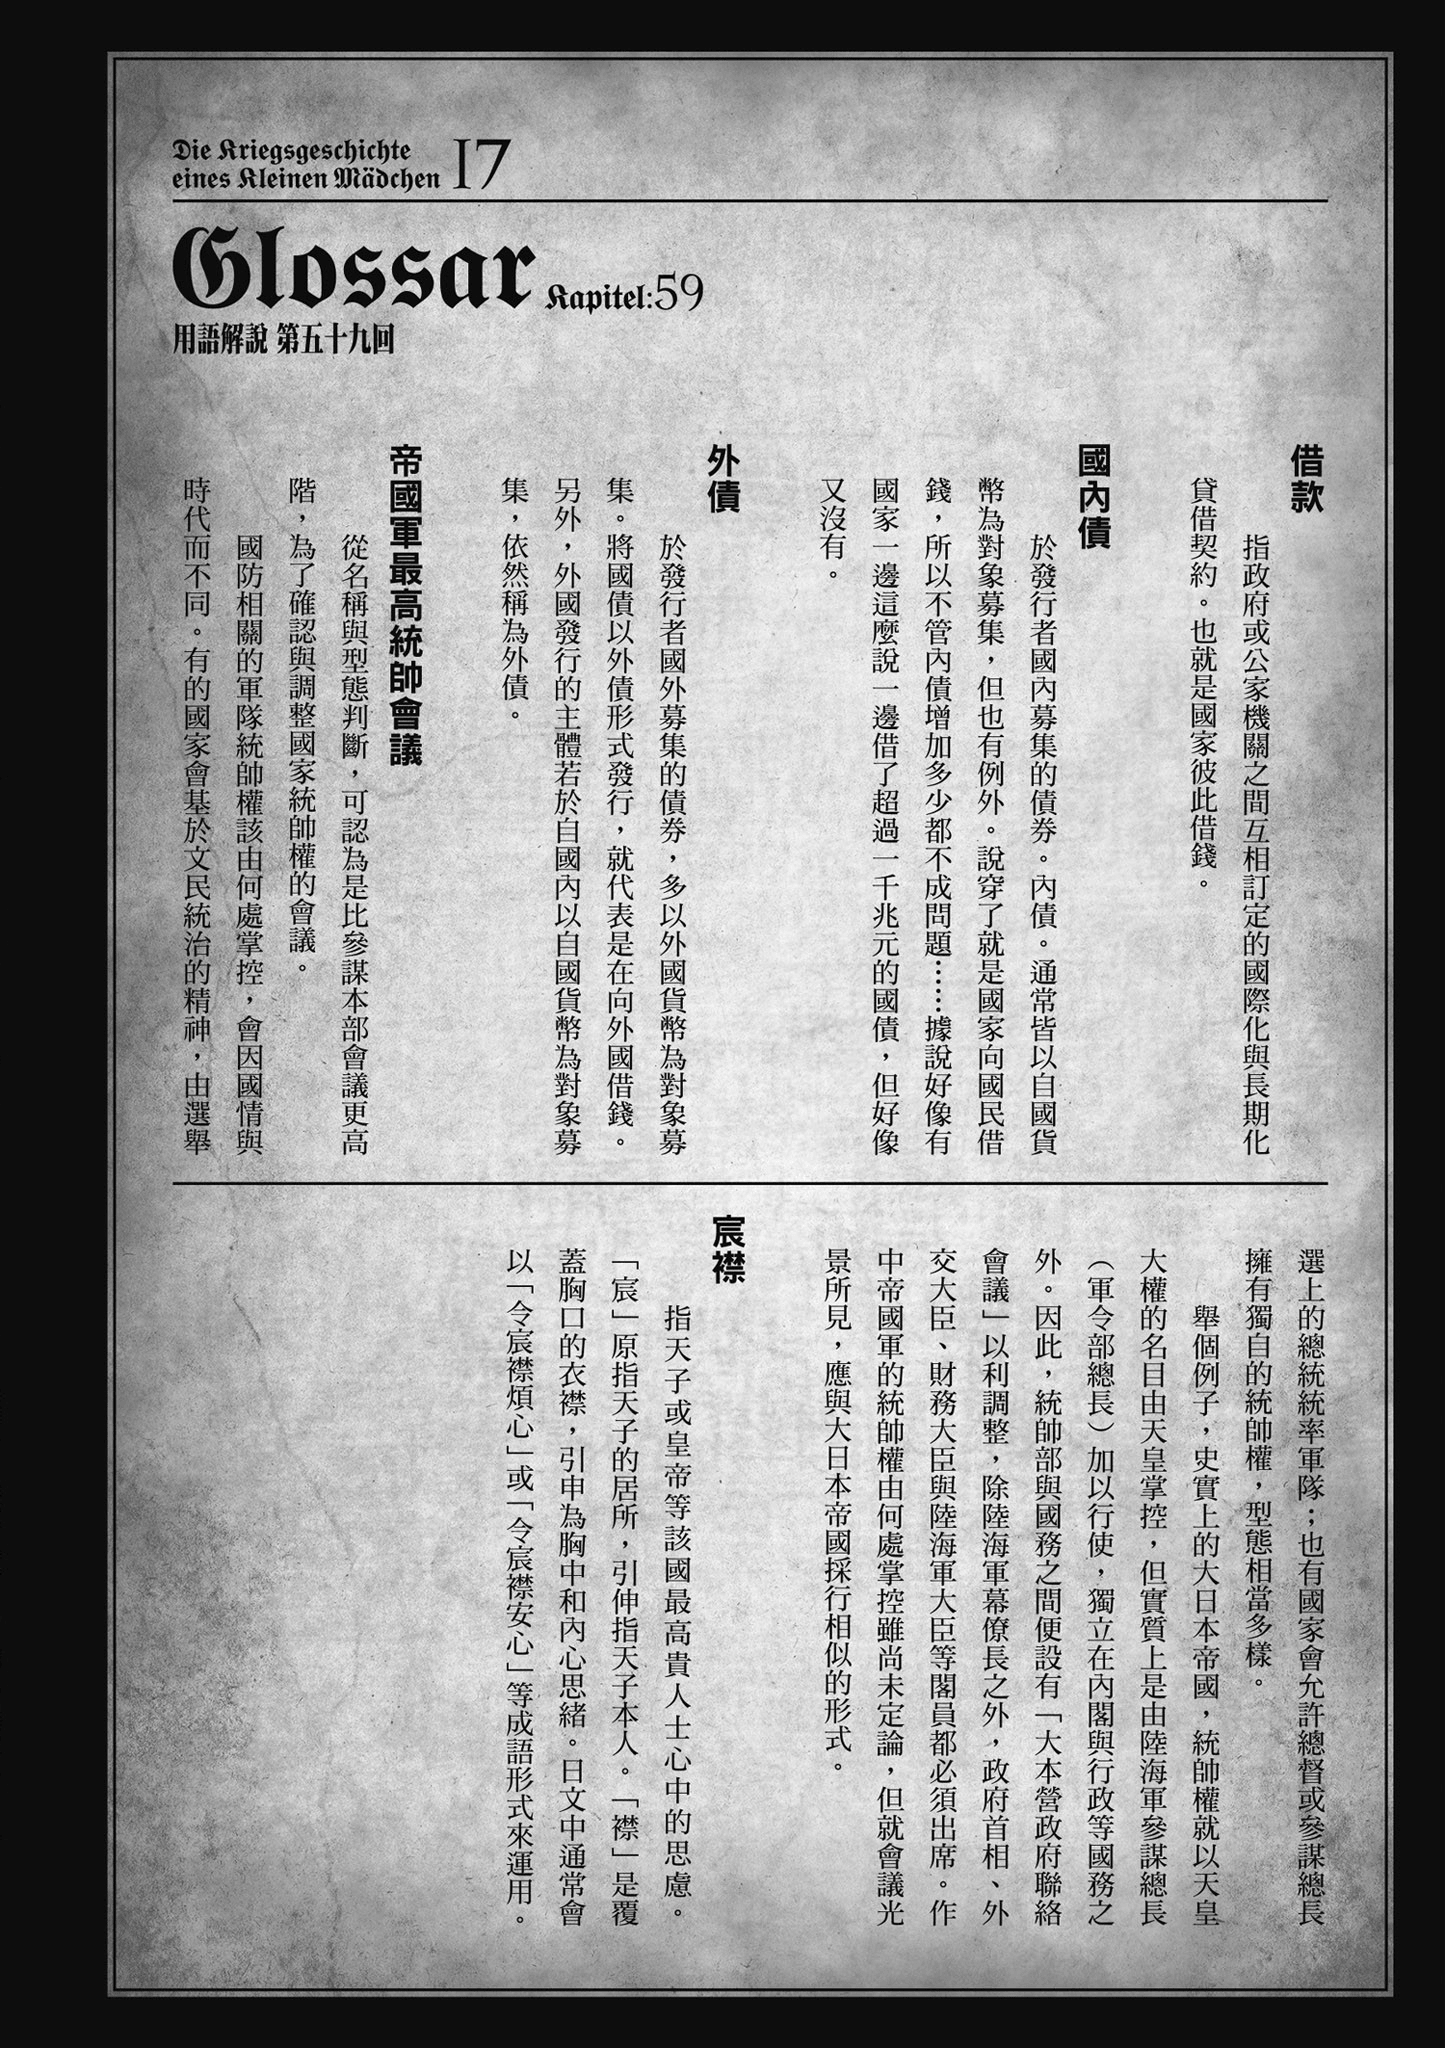 Die Kriegsgeschichte
eines Kleinen Mädchen 17
Glossar Kapitel:59
用語解說 第五十九回
借款
指政府或公家機關之間互相訂定的國際化與長期化
貸借契約。也就是國家彼此借錢。
國內債
於發行者國內募集的債券。內債。通常皆以自國貨
幣為對象募集，但也有例外。說穿了就是國家向國民借
錢，所以不管內債增加多少都不成問題……據說好像有
國家一邊這麼說一邊借了超過一千兆元的國債，但好像
又沒有。
外債
於發行者國外募集的債券，多以外國貨幣為對象募
集。將國債以外債形式發行，就代表是在向外國借錢。
另外，外國發行的主體若於自國內以自國貨幣為對象募
集，依然稱為外債。
帝國軍最高統帥會議
從名稱與型態判斷，可認為是比參謀本部會議更高
階，為了確認與調整國家統帥權的會議。
國防相關的軍隊統帥權該由何處掌控，會因國情與
時代而不同。有的國家會基於文民統治的精神，由選舉
選上的總統統率軍隊；也有國家會允許總督或參謀總長
擁有獨自的統帥權，型態相當多樣。
舉個例子，史實上的大日本帝國，統帥權就以天皇
大權的名目由天皇掌控，但實質上是由陸海軍參謀總長
（軍令部總長）加以行使，獨立在內閣與行政等國務之
外。因此，統帥部與國務之間便設有「大本營政府聯絡
會議」以利調整，除陸海軍幕僚長之外，政府首相、外
交大臣、財務大臣與陸海軍大臣等閣員都必須出席。作
中帝國軍的統帥權由何處掌控雖尚未定論，但就會議光
景所見，應與大日本帝國採行相似的形式。
宸襟
指天子或皇帝等該國最高貴人士心中的思慮。
「宸」原指天子的居所，引伸指天子本人。「襟」是覆
蓋胸口的衣襟，引申為胸中和內心思緒。日文中通常會
以「令宸襟煩心」或「令宸襟安心」等成語形式來運用。